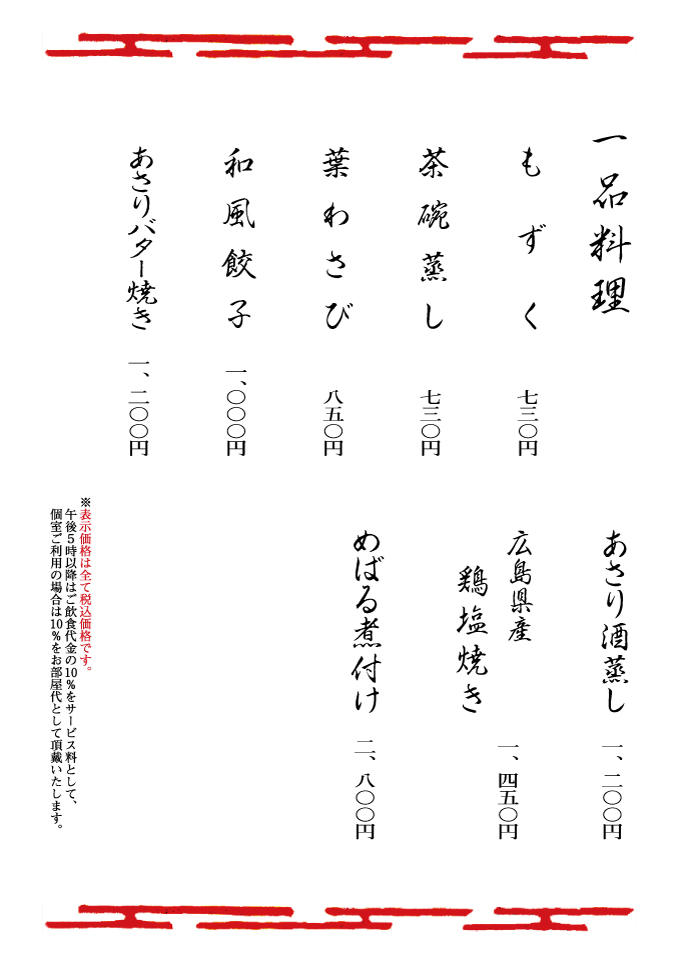 一品料理
もずく 七三〇円
茶碗蒸し 七三〇円
葉わさび 八五〇円
和風餃子 一、〇〇〇円
あさりバター焼き 一、二〇〇円
あさり酒蒸し 一、二〇〇円
広島県産
鶏塩焼き 一、四五〇円
めばる煮付け 二、八〇〇円
※表示価格は全て税込価格です。
午後5時以降はご飲食代金の10%をサービス料として、
個室ご利用の場合は10%をお部屋代として頂戴いたします。